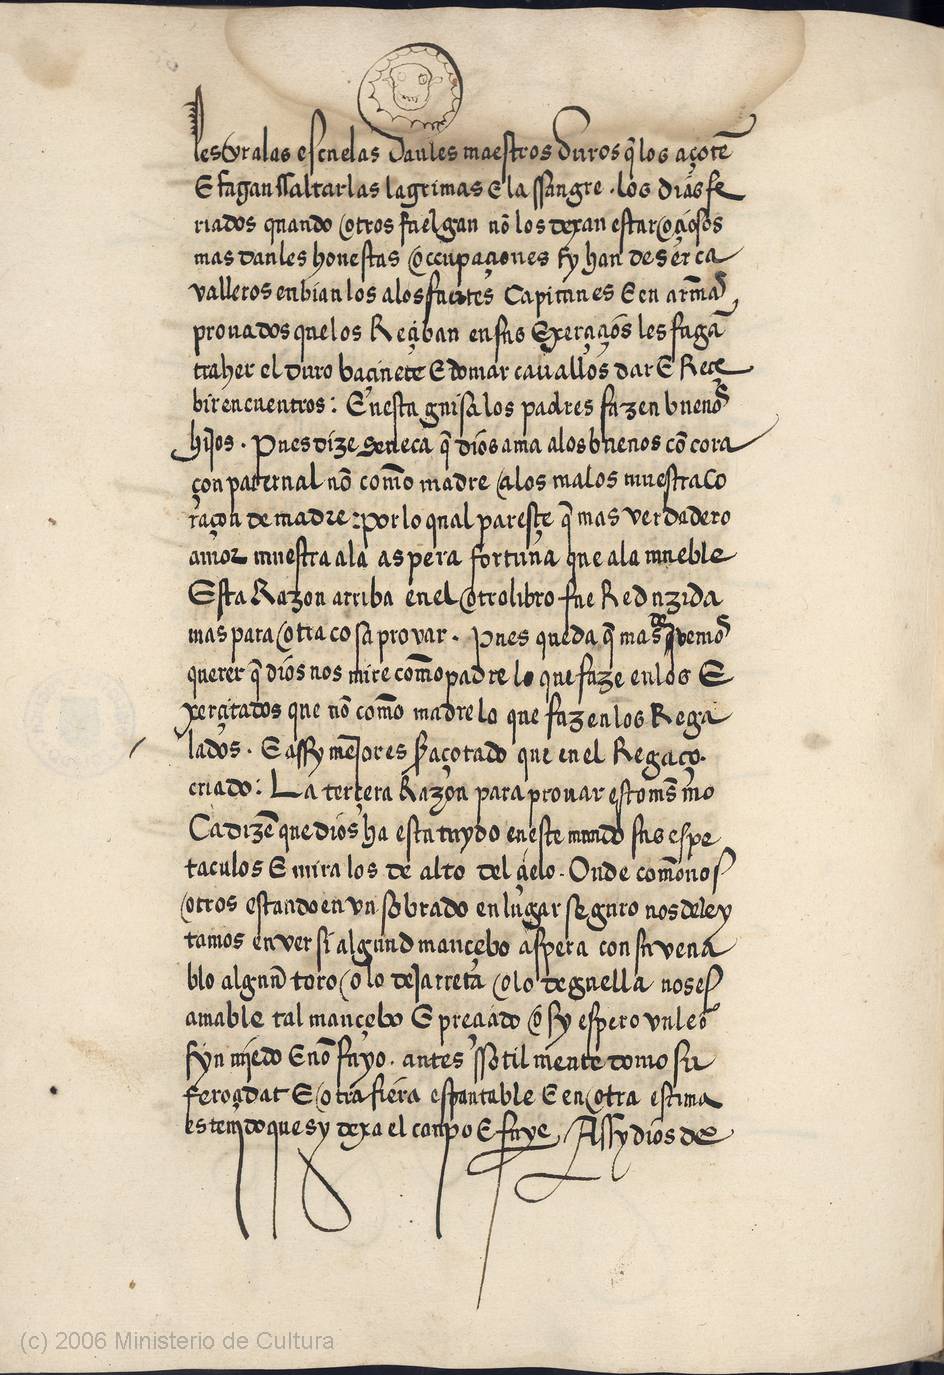 les vr a las escuelas Danles maestros Duros q̃ los açotẽ
E fagan ssaltar las lagrimas E la ssangre . los diãs fe
riados quando otros fuelgan nõ los dexan estar oçiosos
mas danles honestas occupaçiones sy han de sẽr ca
valleros enbian los a los fuertes Capitanes E en armas
prouados que los Reçiban en sus Exerçiçiõs les fagã
traher el duro baçinete E domar cauallos dar E Reçe
bir encuentros : E en esta guisa los padres fazen buenos
hijos . Pues dize seneca q̃ diõs ama a los buenos cõ cora
çon paternal nõ com̃o madre a los malos muestra Co
raçon de madre : por lo qual paresçe q̃ mas verdadero
amor muestra a la aspera fortuña que a la mueble
Esta Razon arriba en el otro libro fue Reduzida
mas para otra cosa prouar . Pues queda q̃ mas deuemos
querer q̃ diõs nos mire com̃o padre lo que faze en los E
xerçitados que nõ com̃o madre lo que faz en los Rega
lados . E assy mejor es ser açotado que en el Regaço .
criado : La terçera Razõn para prouar esto mismo
Ca dizẽ que diõs ha estatuydo en este mundo sus espe
taculos E mira los de alto del çielo . Onde com̃o nos
otros estando en vn sobrado en lugar seguro nos deley
tamos en ver si algund mançebo aspera con su vena
blo algund toro o lo dejarreta o lo deguella nos es
amable tal mançebo E preçiado o sy espero vn leõ
syn miedo E nõ fuyo . antes ssotil mente domo su
feroçidat E otra fiera espantable E en otra estima
es tenido que sy dexa el canpo E fuye , Assy dios de
(c) 2006 Ministerio de Cultura